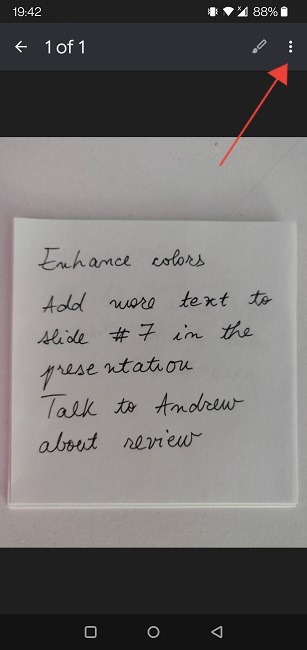 19:42
88%
1 of 1
Enhance colors
Add more text to
slide #7 in the
presentation
Talk to Andrew
about review